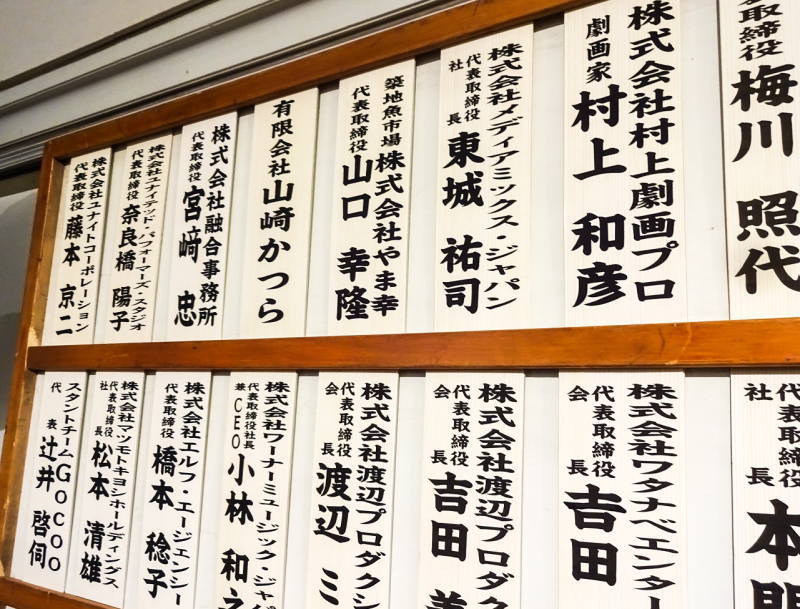 取締役
梅川 照代
株式会社村上劇画プロ
劇画家 村上 和彦
株式会社メディアミックス・ジャパン
代表取締役
社長 東城 祐司
築地魚市場 株式会社やま幸
代表取締役 山口 幸隆
有限会社山崎かつら
株式会社融合事務所
代表取締役 宮﨑 忠
株式会社ユナイテッド・パフォーマーズ・スタジオ
代表取締役 奈良橋 陽子
株式会社ユナイトコーポレーション
代表取締役 藤本 京二
代表取締役
社長 本間
株式会社ワタナベエンター
代表取締役
会長 吉田
株式会社渡辺プロダク
代表取締役
会長 吉田 美
株式会社渡辺プロダクシ
代表取締役
会長 渡辺 ミ
株式会社ワーナーミュージック・ジャパ
代表取締役社長
兼CEO 小林 和之
株式会社エルフ・エージェンシー
代表取締役 橋本 稔子
株式会社マツモトキヨシホールディングス
代表取締役
社長 松本 清雄
スタントチームGocoo
代表 辻井 啓伺